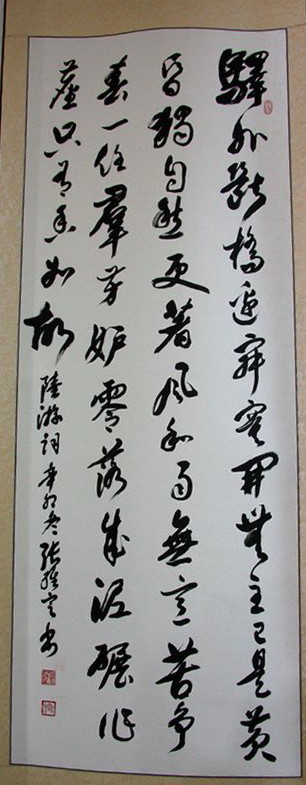 驛外斷橋邊寂寞開無主已是黃
昏獨自愁更著風和雨無意苦爭
春一任羣芳妒零落成泥碾作
塵只有香如故 陸游詞 辛卯冬 張書